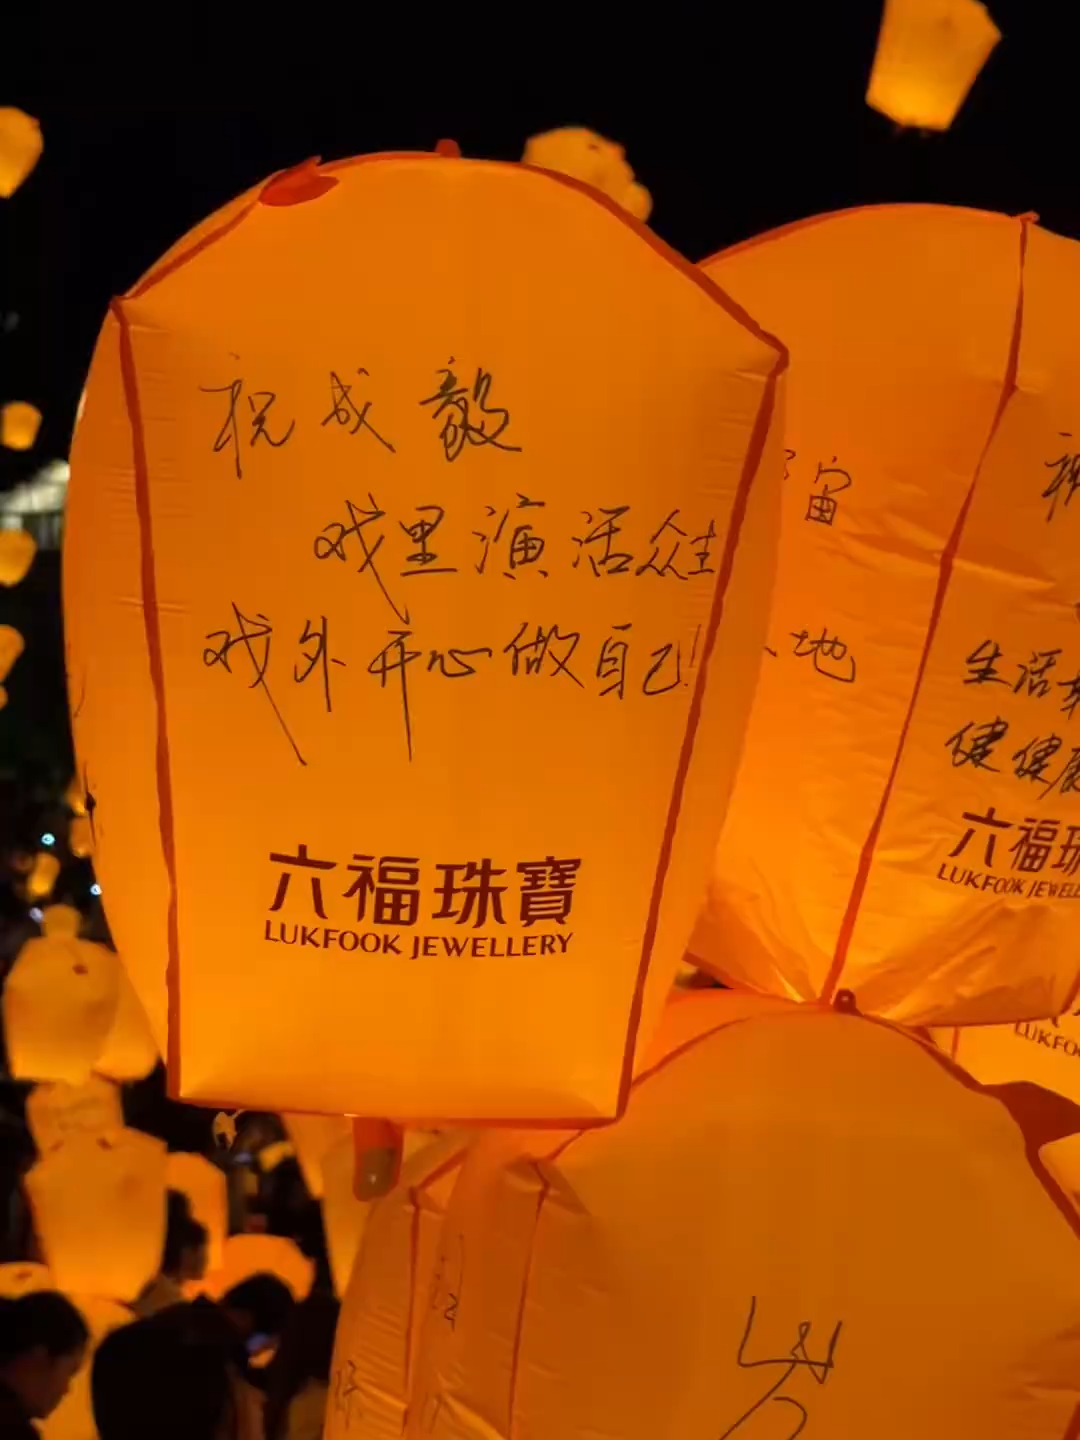 祝成毅
戏里演活众生
戏外开心做自己!
六福珠寶
LUKFOOK JEWELLERY
宙
地
生活
健健康
六福珠
LUKFOOK JEWELL
LUKFOO